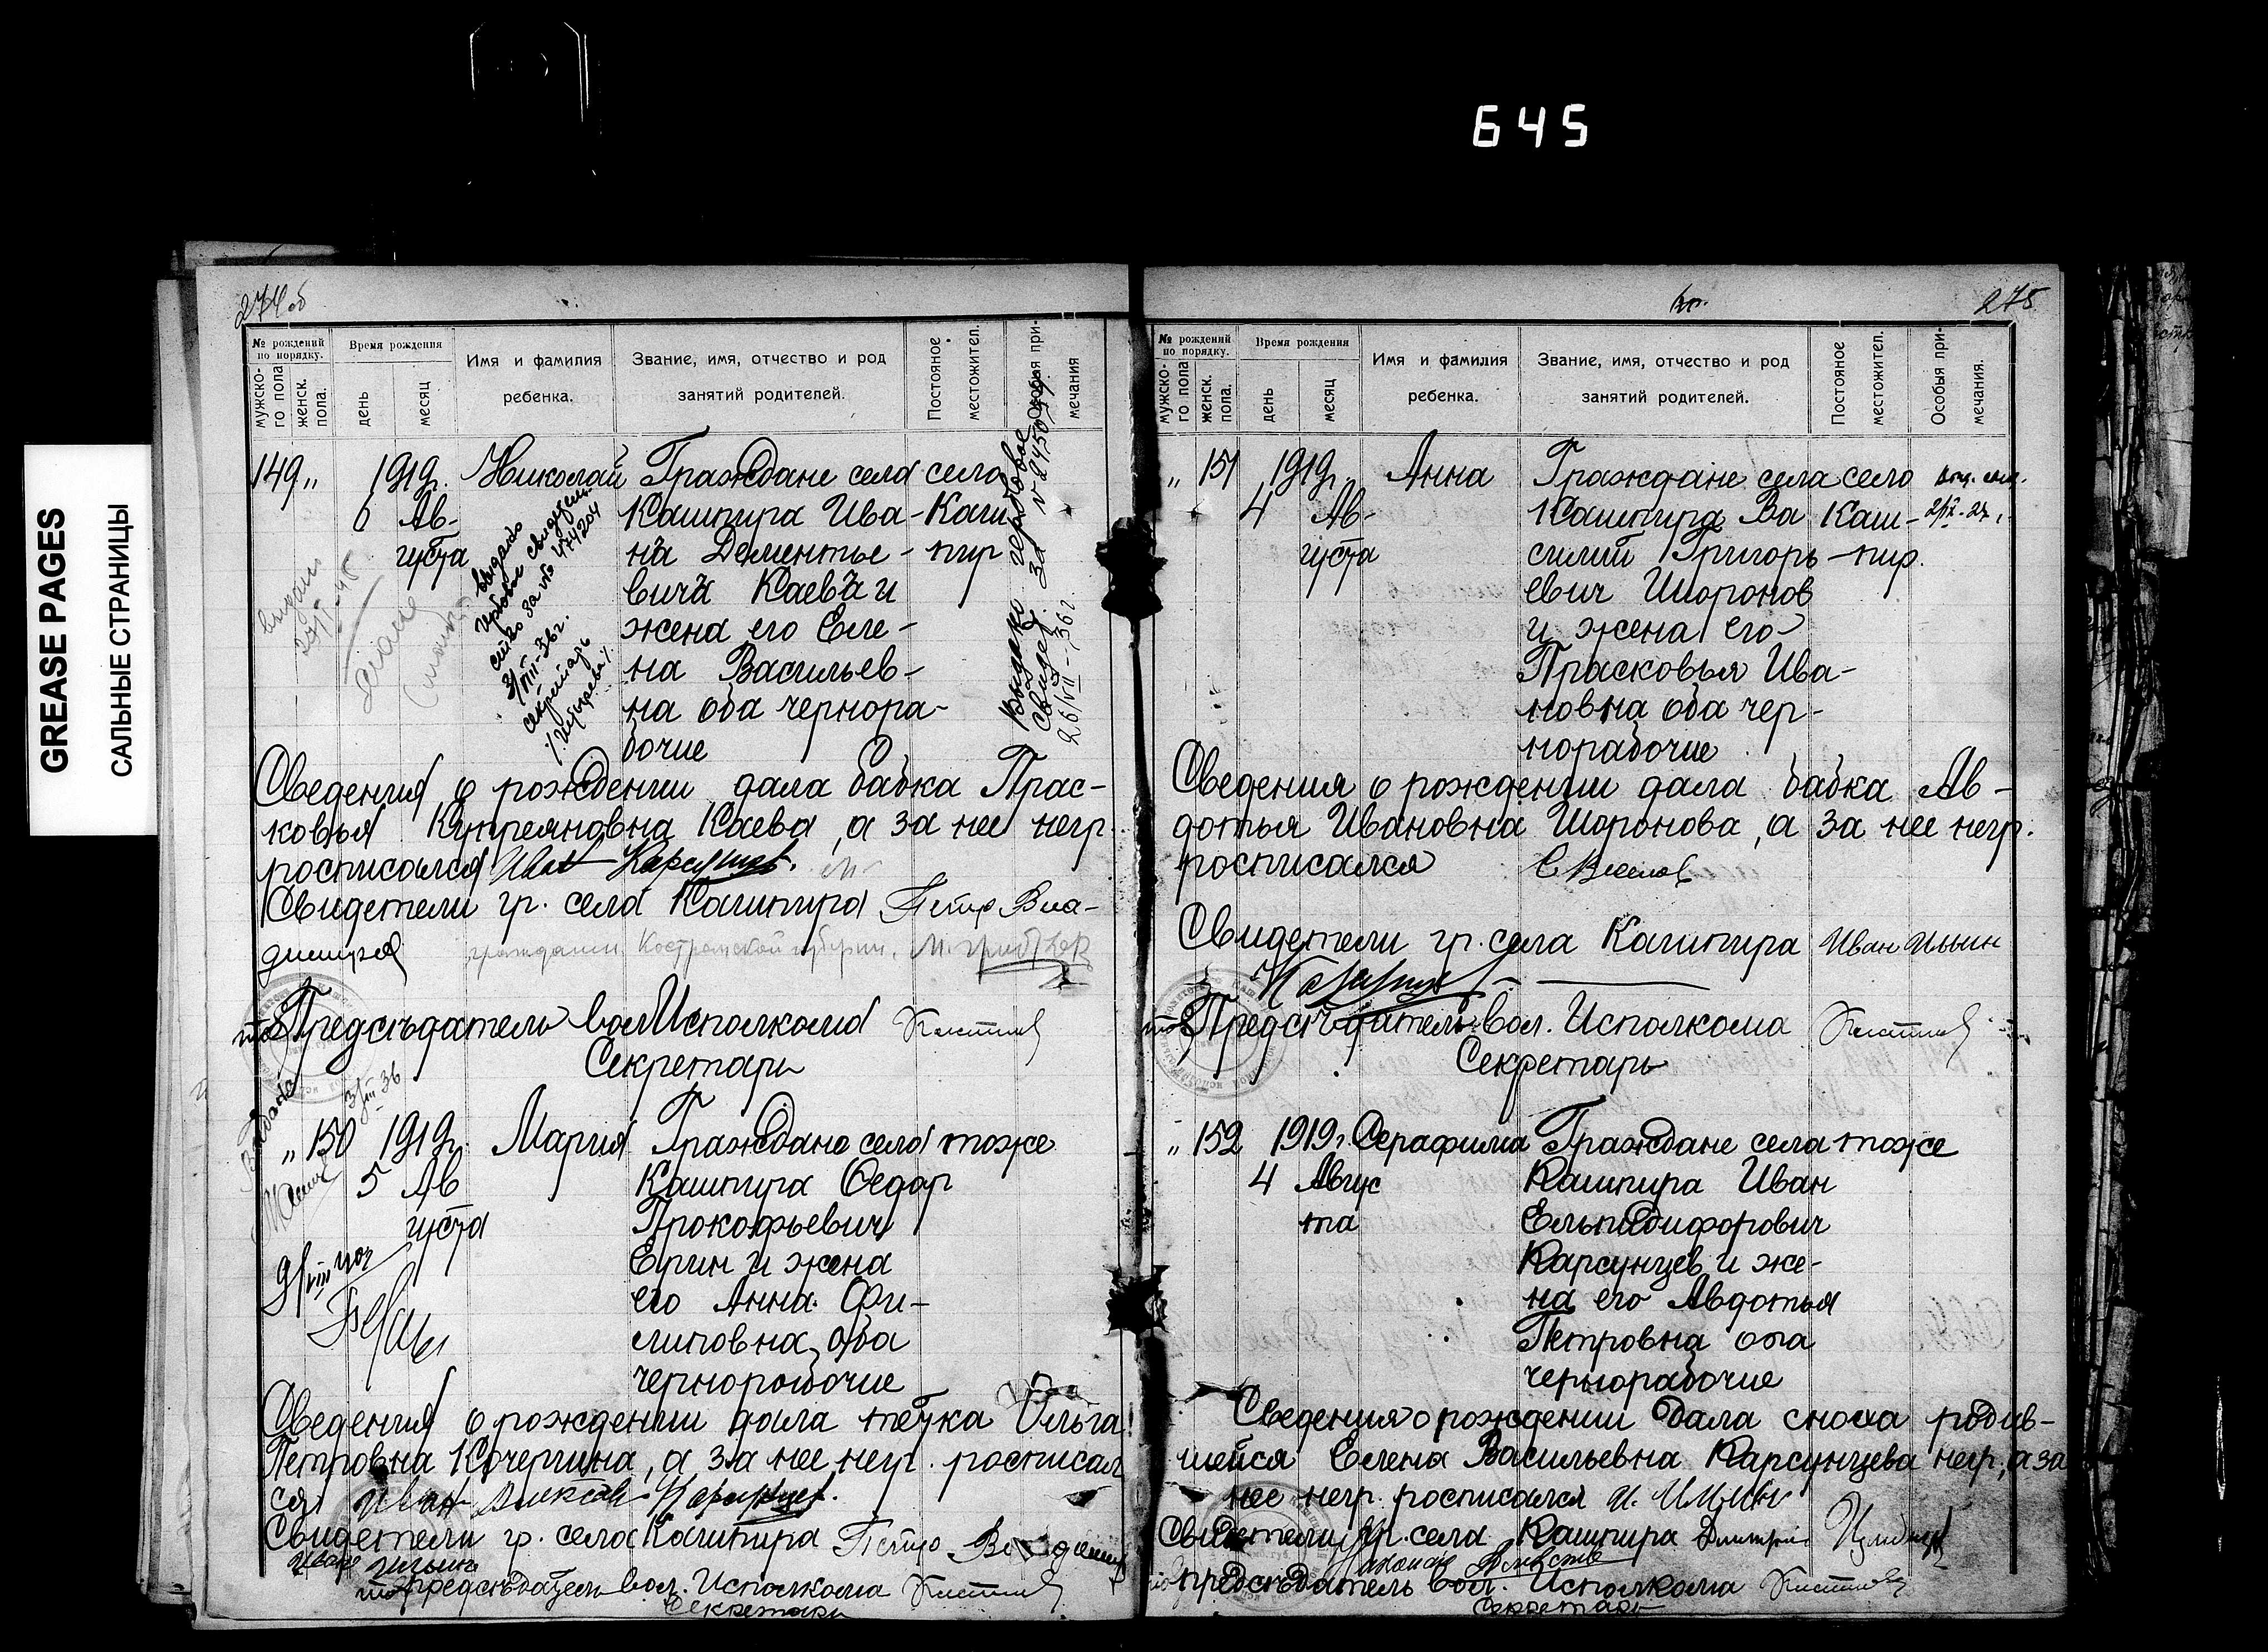 645
GREASE PAGES
САЛЬНЫЕ СТРАНИЦЫ
274 об
№ рождений по порядку.
мужского пола
женск. пола.
Время рождения
день
месяц
Имя и фамилия ребенка.
Звание, имя, отчество и род занятий родителей.
Постояное местожител.
Особыя примечания
149 „ 1919г. Николай Граждане села село
6 Ав- Кашпира Ива- Каш
густа на Дементье- пир
вича Каева и
жена его Еле-
на Васильев-
на оба чернора-
бочие
выдано
гербовое свидетель
ство за № 474204
3/VIII-36г.
секретарь
Выдано гербовое
свидет. за № 2450
26/VII-36г.
Сведения о рождении дала бабка Прас-
ковья Куприяновна Каева, а за нее негр.
росписался Иван Карсунцев.
Свидетели гр. села Кашпира Петр Вла-
димиров гражданин Костромской губернии. М.
Предсѣдатель вол Исполкома
Секретарь
3/VIII-36
„ 150 1919г. Мария Граждане села тоже
5 Ав Кашпира Федор
густа Прокофьевич
Ерин и жена
его Анна Фи-
липовна оба
чернорабочие
Сведения о рождении дала тетка Ольга
Петровна Кочергина, а за нее негр. росписал
ся Иван Карсунцев.
Свидетели гр. села Кашпира Петр
Иван Ильин
Предсѣдатель вол. Исполкома
Секретарь
275
№ рождений по порядку.
мужского пола
женск. пола.
Время рождения
день
месяц
Имя и фамилия ребенка.
Звание, имя, отчество и род занятий родителей.
Постояное местожител.
Особыя примечания.
„ 151 1919г. Анна Граждане села село
4 Ав- Кашпира Ва Каш-
густа силий Григорь- пир.
евич Шоронов
и жена его
Прасковья Ива-
новна оба чер-
норабочие
Сведения о рождении дала бабка Ав-
дотья Ивановна Шоронова, а за нее негр.
росписался
Свидетели гр. села Кашпира Иван Ильин
Предсѣдатель вол. Исполкома
Секретарь
„ 152 1919г. Серафима Граждане села тоже
4 Авгус Кашпира Иван
та Ельпидифорович
Карсунцев и же-
на его Авдотья
Петровна оба
чернорабочие
Сведения о рождении дала сноха родив-
шейся Елена Васильевна Карсунцева негр, а за
нее негр. росписался И. Ильин
Свидетели гр. села Кашпира Дмитрий
Предсѣдатель вол. Исполкома
Секретарь